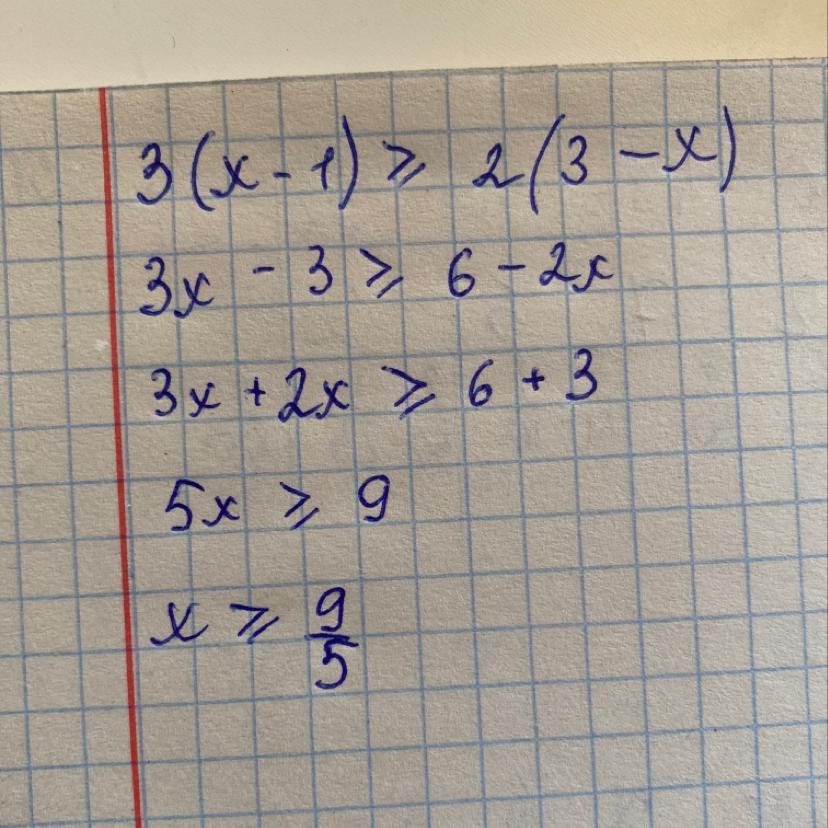 3(x - 1) ⩾ 2(3 - x)
3x - 3 ⩾ 6 - 2x
3x + 2x ⩾ 6 + 3
5x ⩾ 9
x ⩾ 9/5